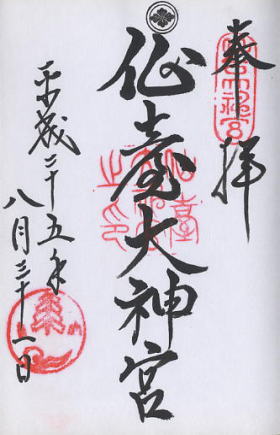 奉拝
仙臺大神宮
平成二十五年
八月三十一日